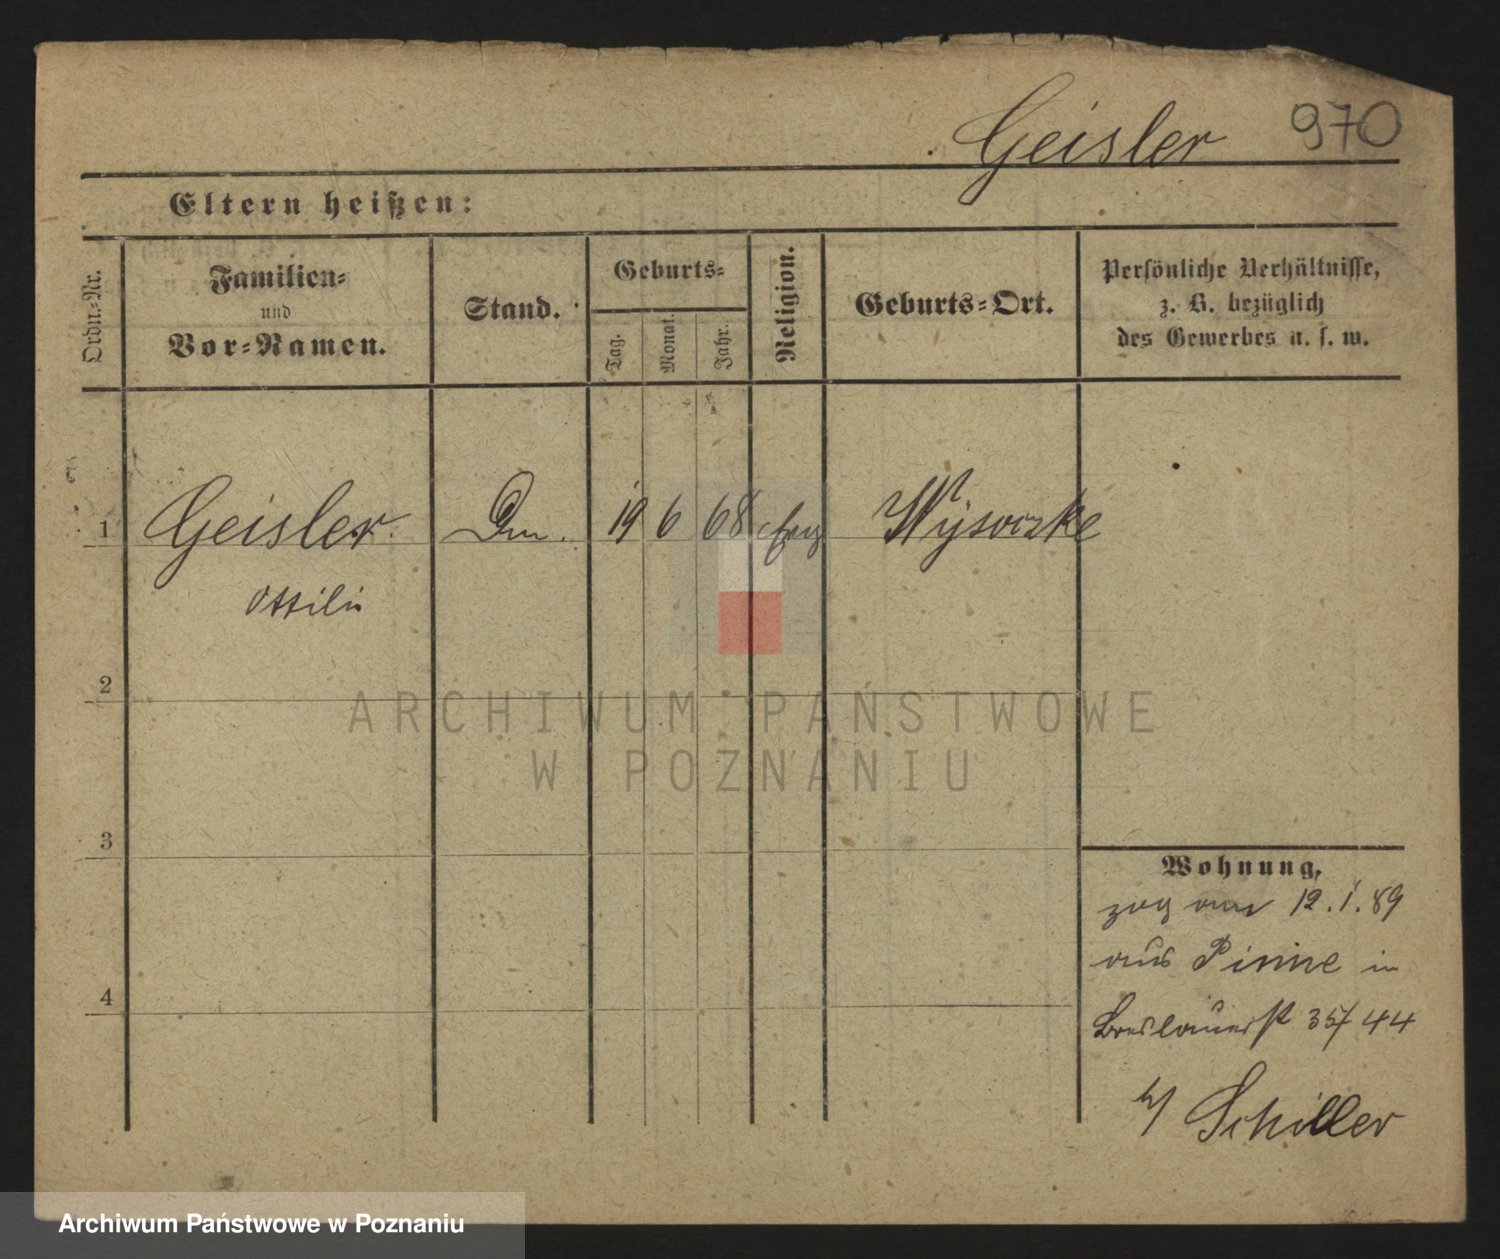 Geisler 970
Eltern heißen:
Ordn.-Nr.
Familien-
und
Vor-Namen.
Stand.
Geburts-
Tag.
Monat.
Jahr.
Religion.
Geburts-Ort.
Persönliche Verhältnisse,
z. B. bezüglich
des Gewerbes u. s. w.
1 Geisler 19 6 68 Wysoczke
Ottilie
2
3
4
Wohnung,
zog am 12.1.89
aus Pinne in
Breslauerst 35/44
b/ Schiller
ARCHIWUM PAŃSTWOWE
W POZNANIU
Archiwum Państwowe w Poznaniu